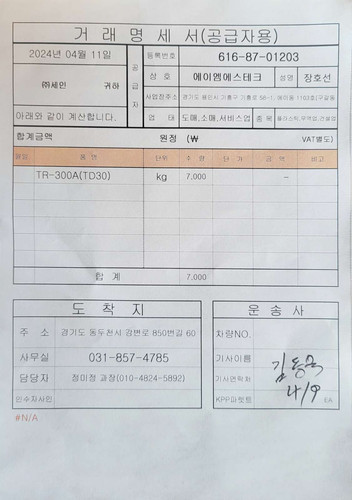 거 래 명 세 서(공급자용)
2024년 04월 11일
공급자
등록번호 616-87-01203
㈜세인 귀하
상 호 에이엠에스테크 성명 장호선
사업장주소 경기도 용인시 기흥구 기흥로 58-1,
아래와 같이 계산합니다.
업 태 도매,소매,서비스업 종목
합계금액 원정 (₩ VAT별도)
품 명 단위 수 량 단 가 금 액 비고
TR-300A(TO30) kg 7,000 -
합 계 7,000
도 착 지
주 소 경기도 동두천시 강변로 850번길 60
사무실 031-857-4785
담당자 정미정 과장(010-4824-5892)
인수자사인
운 송 사
차량NO.
기사이름 김동국
기사연락처
KPP파렛트 4/9 EA
#N/A